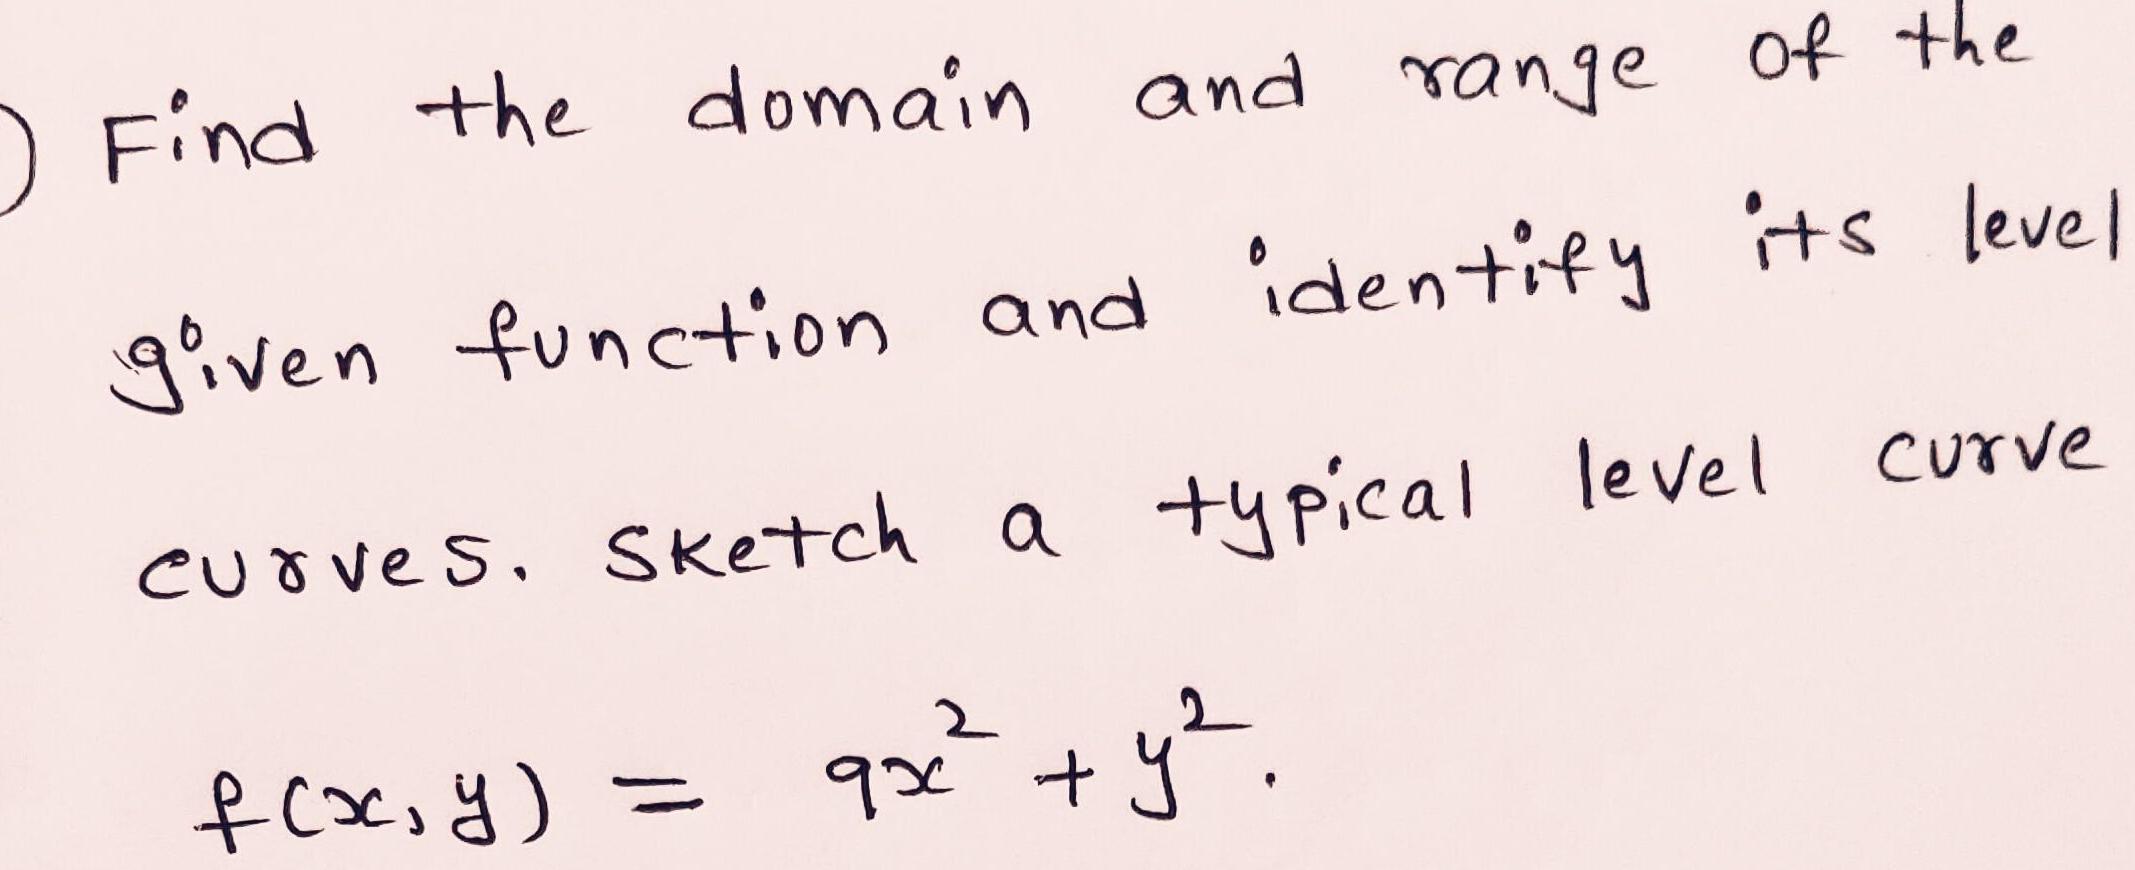 ) Find the domain and range of the
given function and identify its level
curves. Sketch a typical level curve
f(x,y) = 9x² + y².